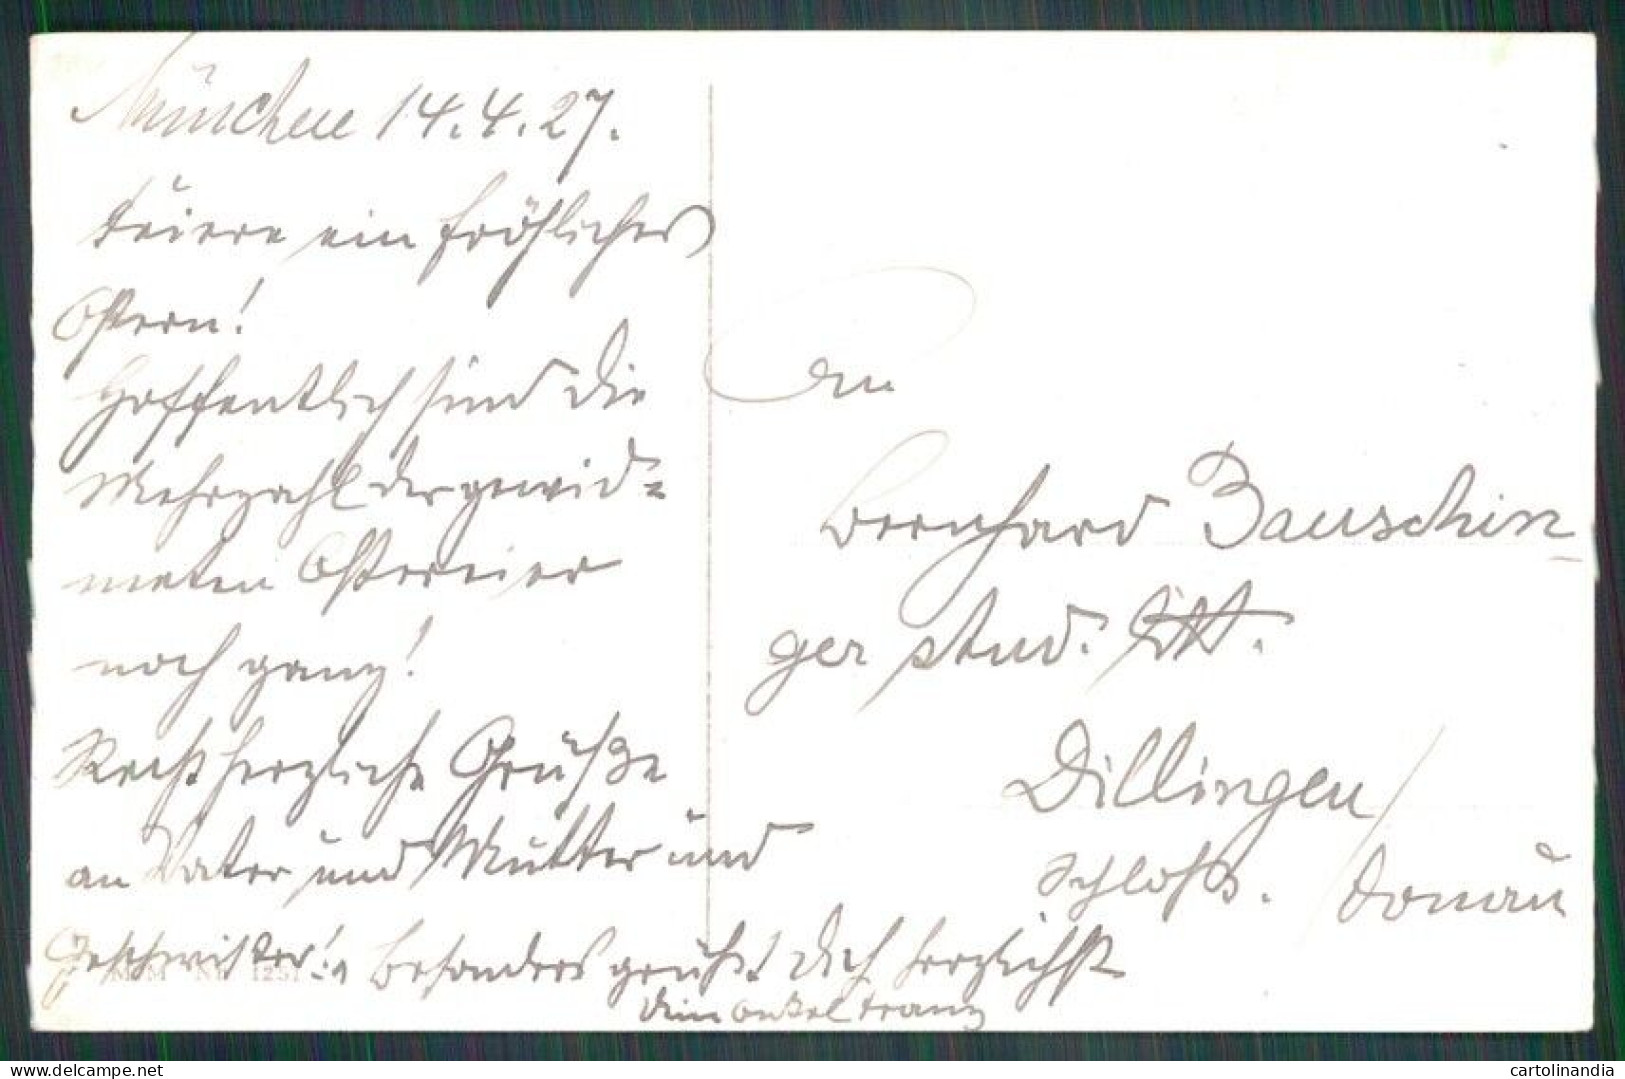 München 14.4.27.
Feiere ein fröhliches
Ostern!
Hoffentlich sind die
Mehrzahl der gewid=
meten Ostereier
noch ganz!
Recht herzliche Grüße
an Vater und Mutter und
Geschwister! besonders grüßt Dich herzlichst
Dein Onkel Franz
An
Bernhard Bauschin
ger stud. litt.
Dillingen /
Schloßs. Donau
M M Nr. 1251
Delcampe.net
cartolinandia